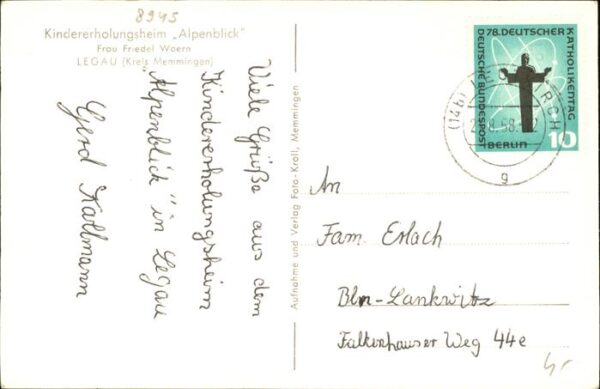 8945
Kindererholungsheim „Alpenblick"
Frau Friedel Waern
LEGAU (Kreis Memmingen)
Viele Grüße aus dem
Kindererholungsheim
"Alpenblick" in Legau
Gerd Kallmann
Aufnahme und Verlag Foto-Kroll, Memmingen
78. DEUTSCHER
KATHOLIKENTAG
DEUTSCHE BUNDESPOST
BERLIN
10
(14b)
g
An
Fam. Erlach
Bln-Lankwitz
Falkenhauser Weg 44e